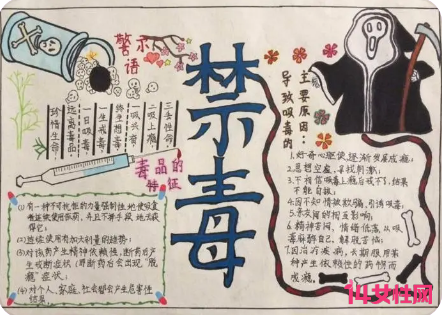 警示
语
禁毒
三害性命
二吸上瘾
一吸兴奋
终生想毒
一朝吸毒
一生戒毒
一日吸毒
远离毒品
珍惜生命
毒品的
特征
(1)有一种不可抗拒的力量强制性地使吸食
者连续使用该药，并且不择手段地去获
得它；
(2)连续使用有加大剂量的趋势；
(3)对该药产生精神依赖性，断药后产
生戒断症状
瘾"症状；
(4)对个人、家庭、社会都会产生危害性
结果。
主要原因：
导致吸毒的
1.好奇心驱使，逐渐发展成瘾；
2.思想空虚，寻找刺激；
3.不相信吸毒上瘾后戒不了，结果
不能自拔；
4.因不知情被欺骗，引诱吸毒；
5.亲友间的相互影响；
6.精神苦闷，情绪低落，从吸
毒麻醉自己，解脱苦恼；
7.因治疗疾病，长期服用某
种产生依赖性的药物而
成瘾。
女性网